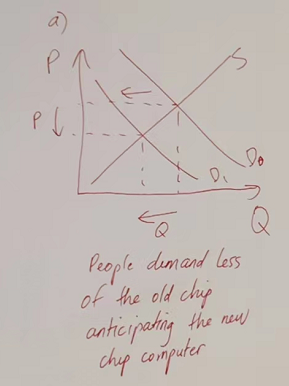 a)
P
S
P ↓
D₀
D₁
Q
Q
People demand less
of the old chip
anticipating the new
chip computer